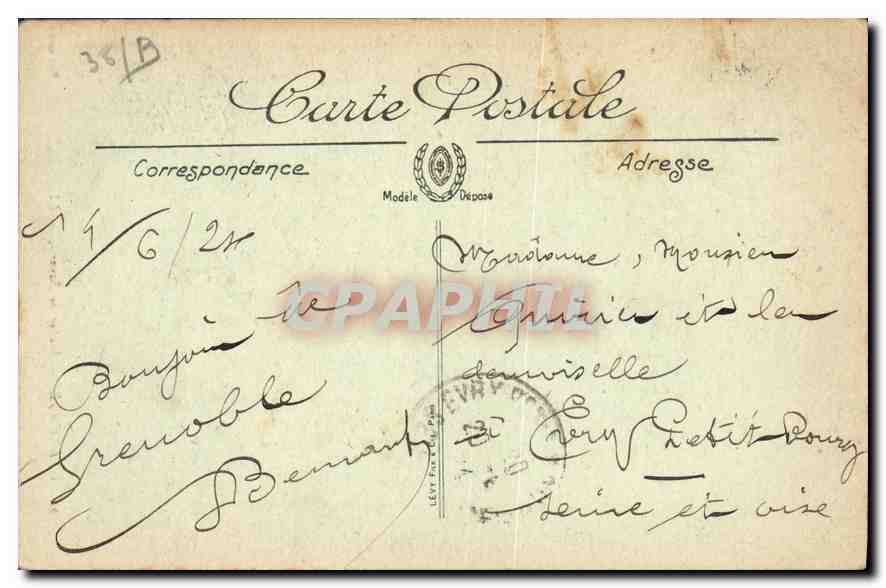 36/B
Carte Postale
Correspondance
Adresse
Modèle Déposé
14/6/24
Bonjour de
Grenoble
CPAPHIL
Madame, Monsieur
et la
demoiselle
à Evry Petit Bourg
Seine et oise
EVRY
LEVY Fils & Cie, Paris